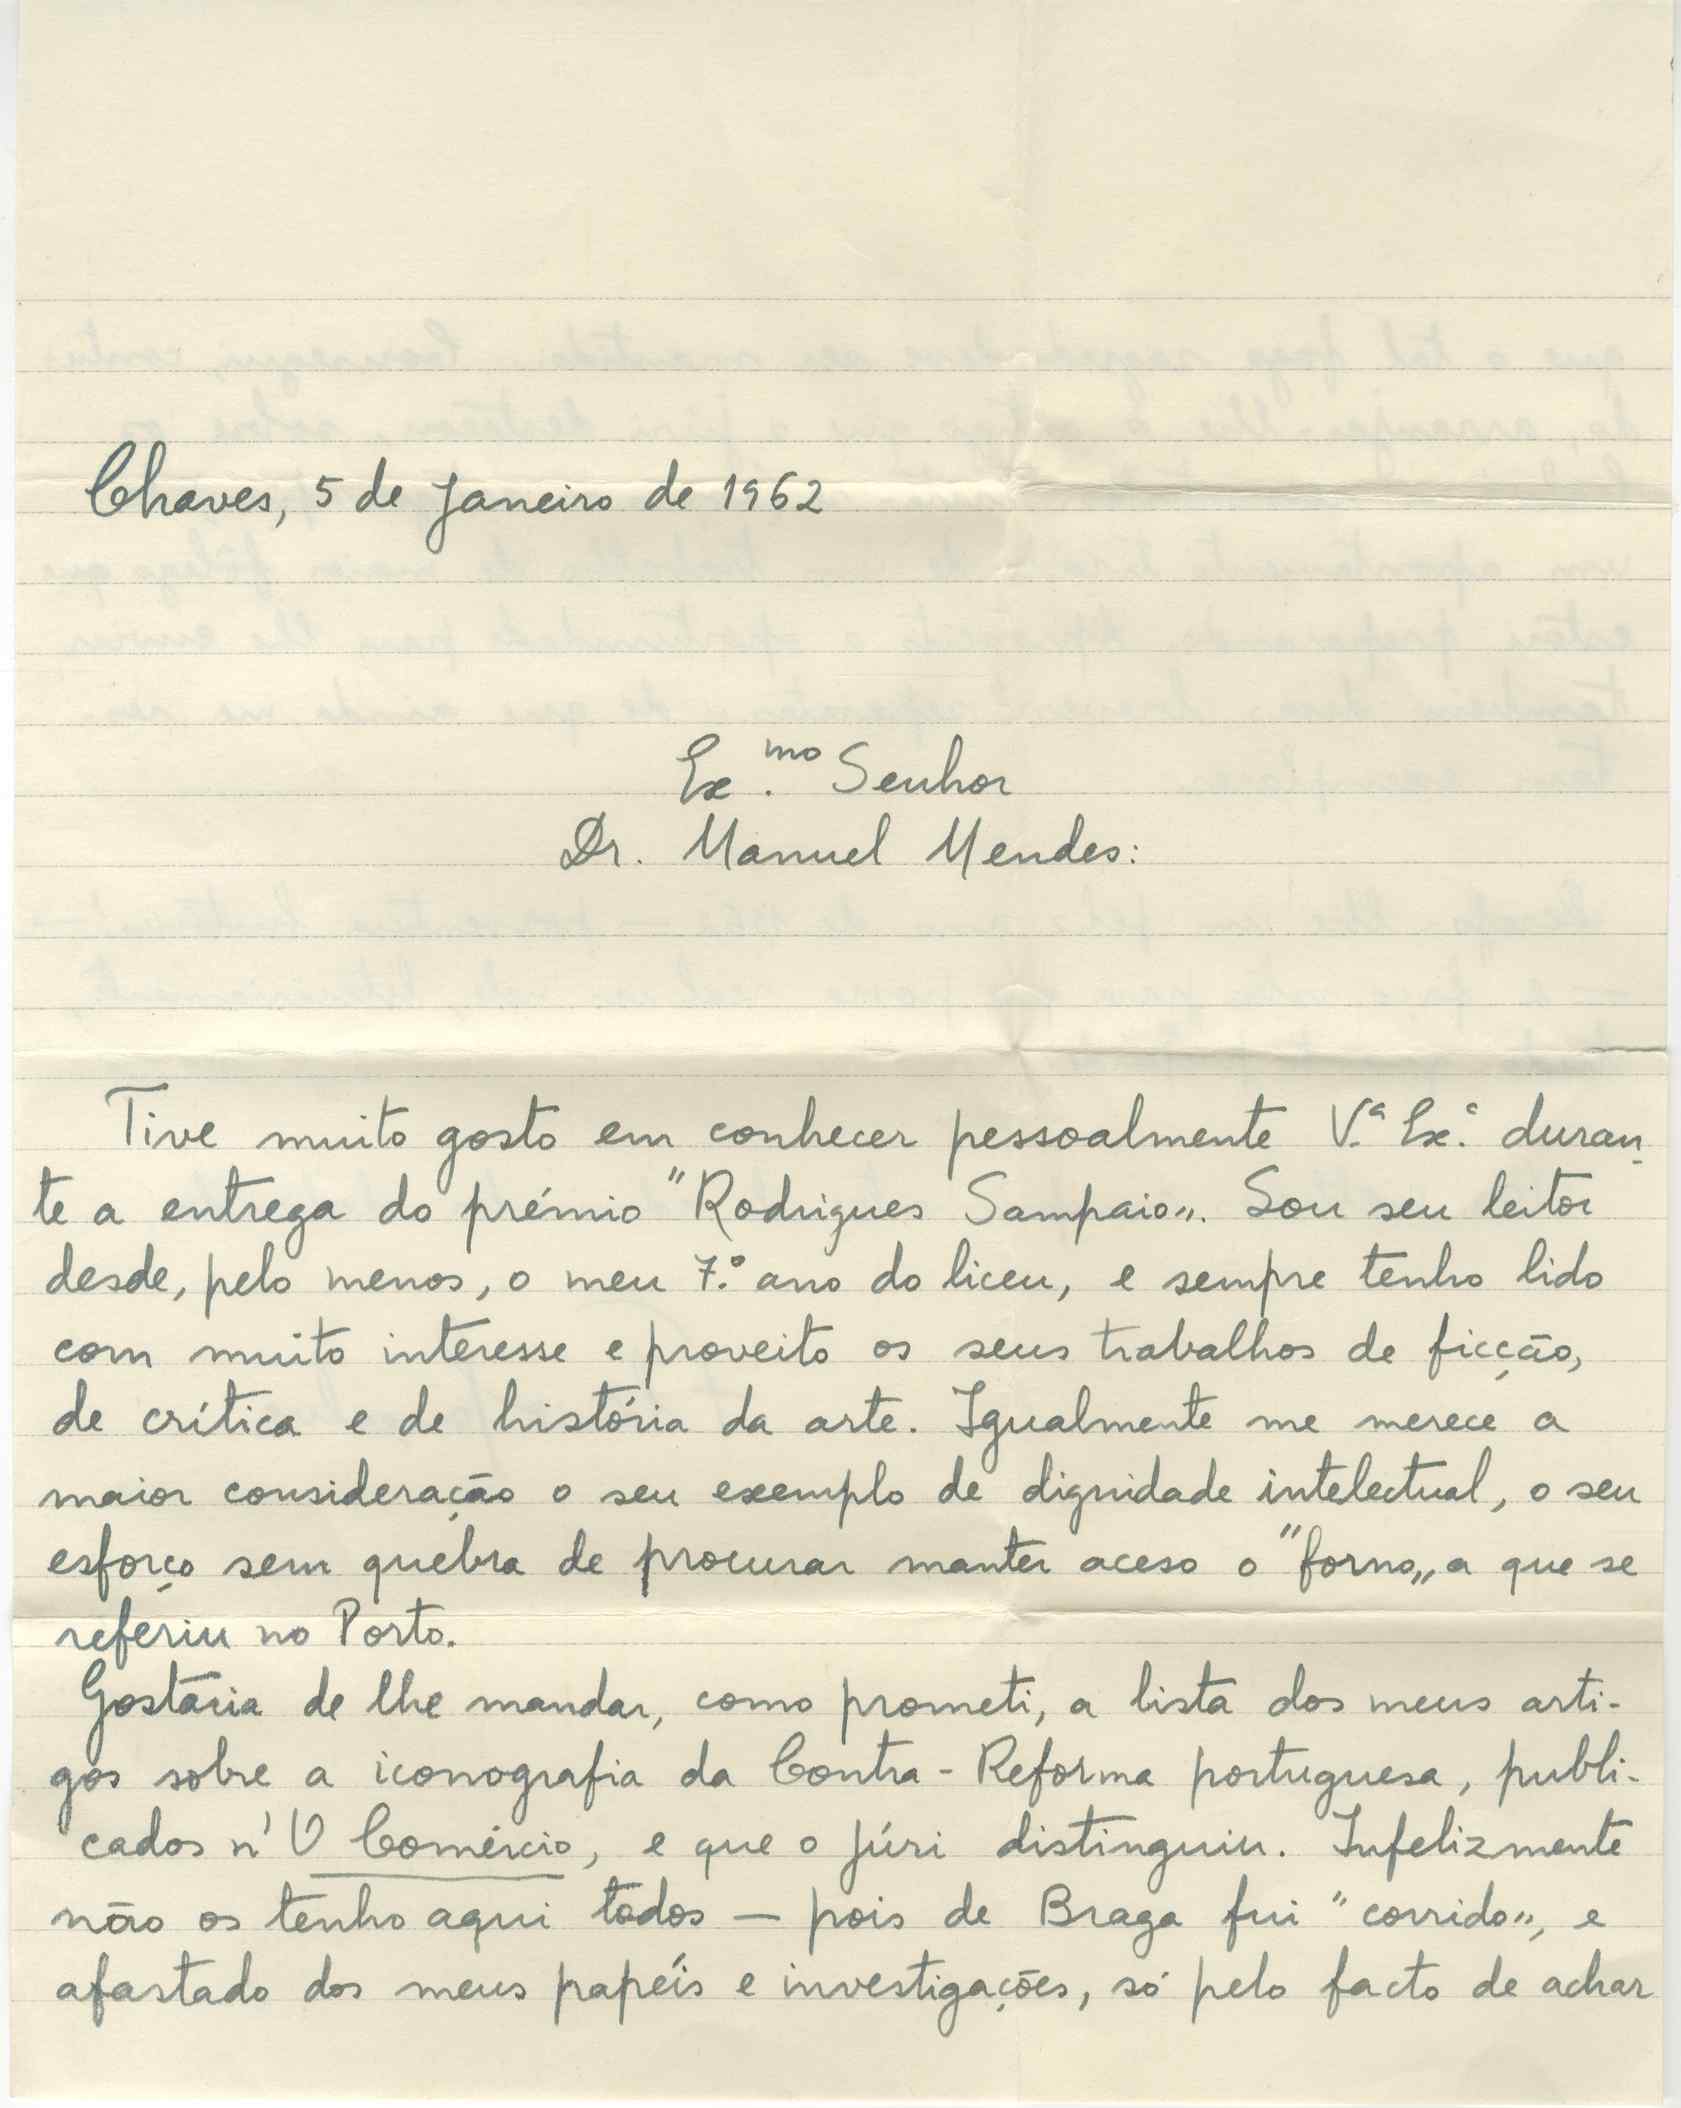 Chaves, 5 de Janeiro de 1962
Ex.mo Senhor
Dr. Manuel Mendes:
Tive muito gosto em conhecer pessoalmente V.ª Ex.ª duran-
te a entrega do prémio "Rodrigues Sampaio". Sou seu leitor
desde, pelo menos, o meu 7.º ano do liceu, e sempre tenho lido
com muito interesse e proveito os seus trabalhos de ficção,
de crítica e de história da arte. Igualmente me merece a
maior consideração o seu exemplo de dignidade intelectual, o seu
esforço sem quebra de procurar manter aceso o "forno" a que se
referiu no Porto.
Gostaria de lhe mandar, como prometi, a lista dos meus arti-
gos sobre a iconografia da Contra-Reforma portuguesa, publi-
cados n'O Comércio, e que o júri distinguiu. Infelizmente
não os tenho aqui todos — pois de Braga fui "corrido", e
afastado dos meus papéis e investigações, só pelo facto de achar